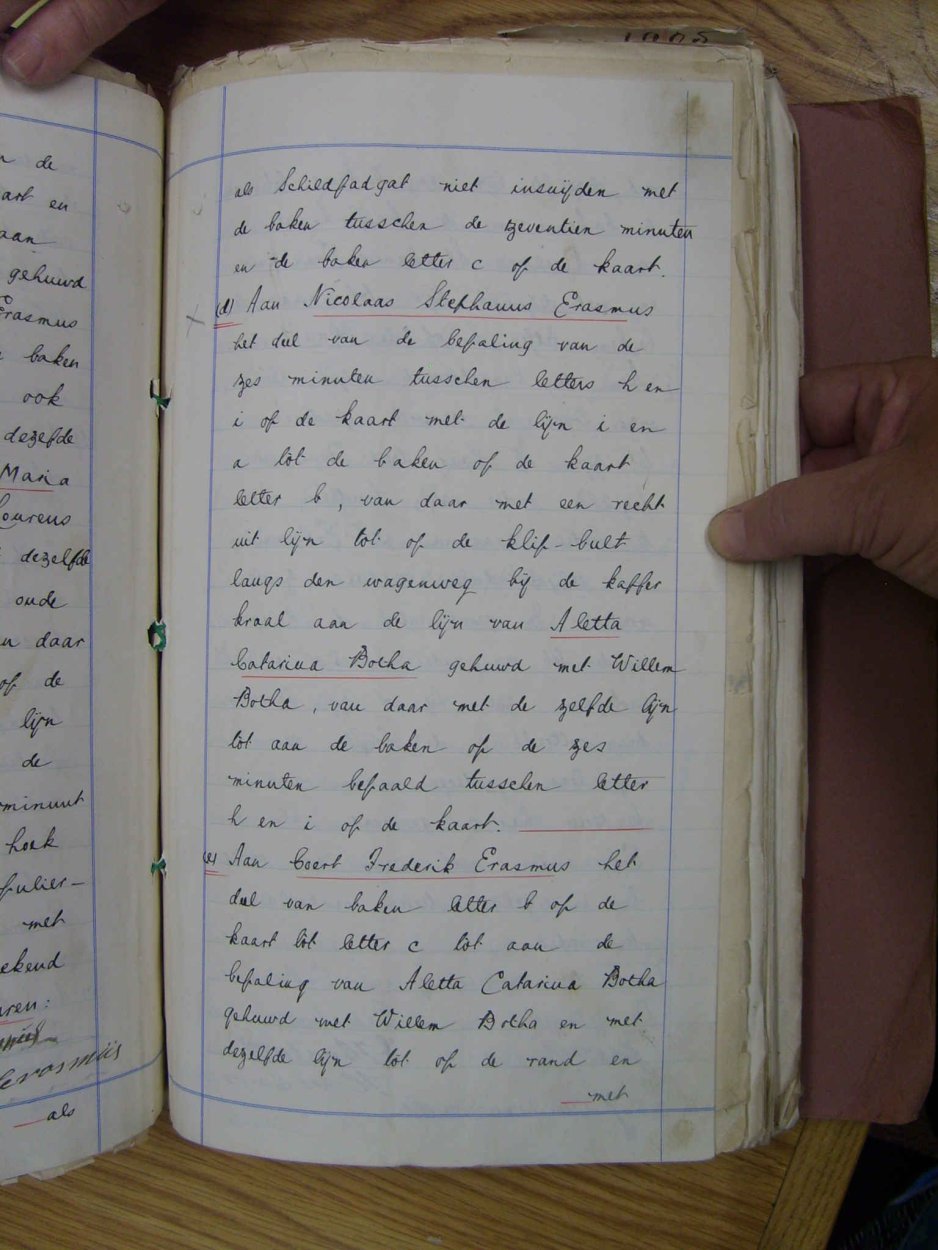 n de
art en
aan
gehuwd
Erasmus
baken
ook
dezefde
Maria
Lourens
dezelfde
oude
n daar
of de
lijn
de
minuut
hoek
pulier-
met
ekend
aren:
erasmus
als
als Schildpadgat niet insnijden met
de baken tusschen de zeventien minuten
en de baken letter c op de kaart.
(d) Aan Nicolaas Stephanus Erasmus
het deel van de bepaling van de
zes minuten tusschen letters h en
i op de kaart met de lijn i en
a tot de baken op de kaart
letter b, van daar met een recht
uit lijn tot op de klip-bult
langs den wagenweg bij de kaffer
kraal aan de lijn van Aletta
Catarina Botha gehuwd met Willem
Botha, van daar met de zelfde lijn
tot aan de baken op de zes
minuten bepaald tusschen letter
h en i op de kaart.
(e) Aan Coert Frederik Erasmus het
deel van baken letter b op de
kaart tot letter c tot aan de
bepaling van Aletta Catarina Botha
gehuwd met Willem Botha en met
dezelfde lijn tot op de rand en
met